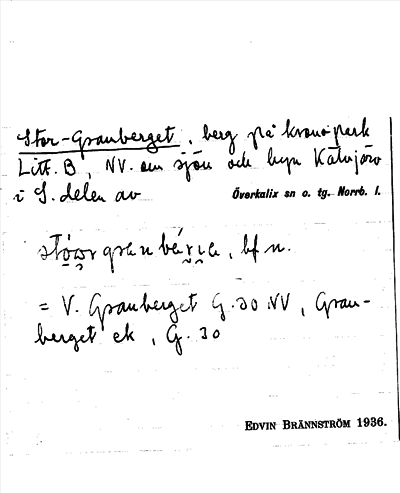 Stor-Granberget, berg på kronopark
Litt. B, NV. om sjön och byn Kälvjärv
i S. delen av Överkalix sn o. tg. Norrb. l.
bf n.
= V. Granberget G. 30 NV, Gran-
berget ek, G. 30
EDVIN BRÄNNSTRÖM 1936.